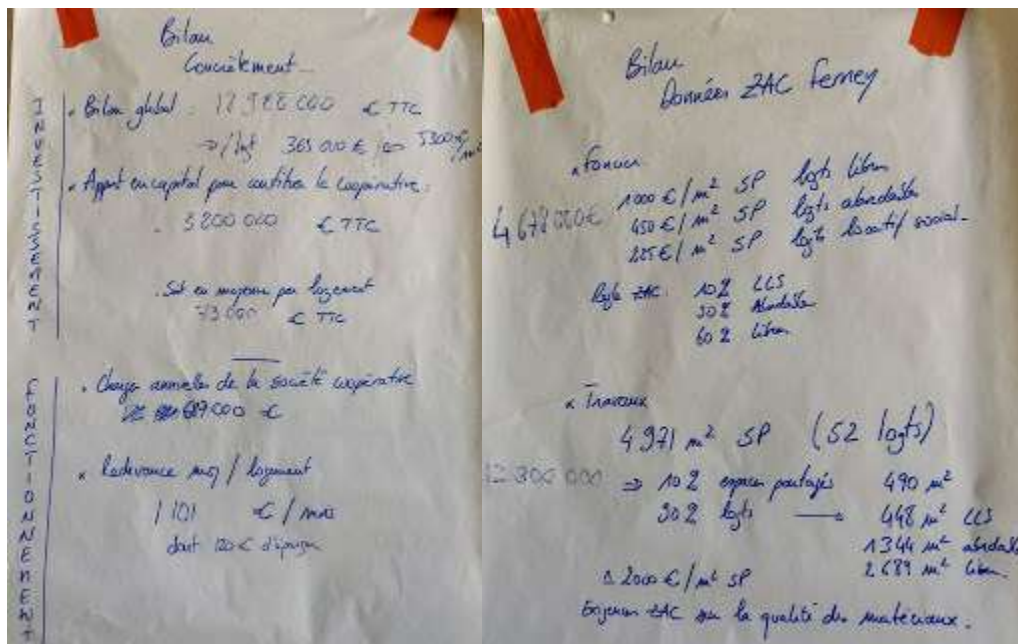 Bilan
Concrètement...
INVESTISSEMENT
• Bilan global : € TTC
⇒ /lgt 365 000 € 5300 €/m²
• Apport en capital pour constituer la coopérative :
€ TTC
. Soit en moyenne par logement
73 000 € TTC
FONCTIONNEMENT
• Charges annuelles de la société coopérative
689 000 €
x Redevance moy / logement
1 101 € / mois
dont 120 € d'épargne
Bilan
Données ZAC Ferney
x Foncier
4 678 000 €
1000 €/m² SP logts libres
450 €/m² SP logts abordables
225 €/m² SP logts locatif social
Règle ZAC : 10% LLS
30% Abordable
60% Libres
x Travaux
4 971 m² SP (52 logts)
⇒ 10% espaces partagés 490 m²
90% logts → 448 m² LLS
1344 m² abordable
2 689 m² libre.
2000 €/m² SP
ZAC sur la qualité des matériaux.